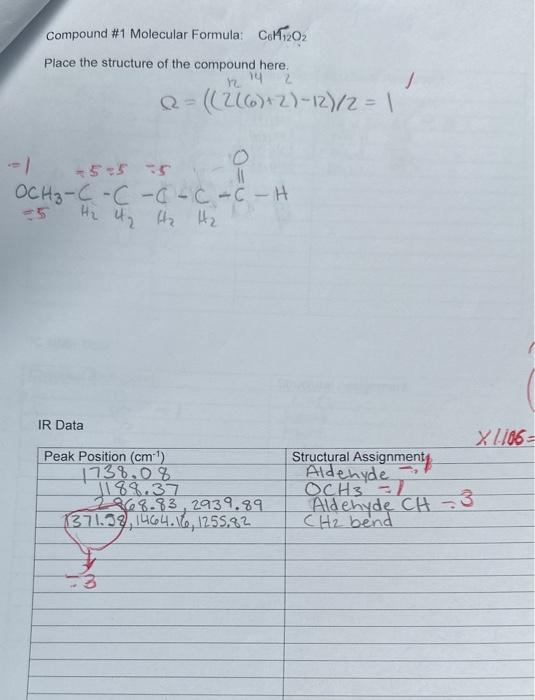 Compound #1 Molecular Formula: C6H12O2
Place the structure of the compound here.
12 14 2
Ω = ((2(6)+2)-12)/2 = 1
-1 -5 -5 -5 O
OCH3-C-C-C-C-C-H
-5 H2 H2 H2 H2
IR Data
X1.106=
Peak Position (cm-1) Structural Assignment
1738.08 Aldehyde -1
1188.37 OCH3 -1
2868.83, 2939.89 Aldehyde CH -3
1371.38, 1464.16, 1255.82 CH2 bend
-3